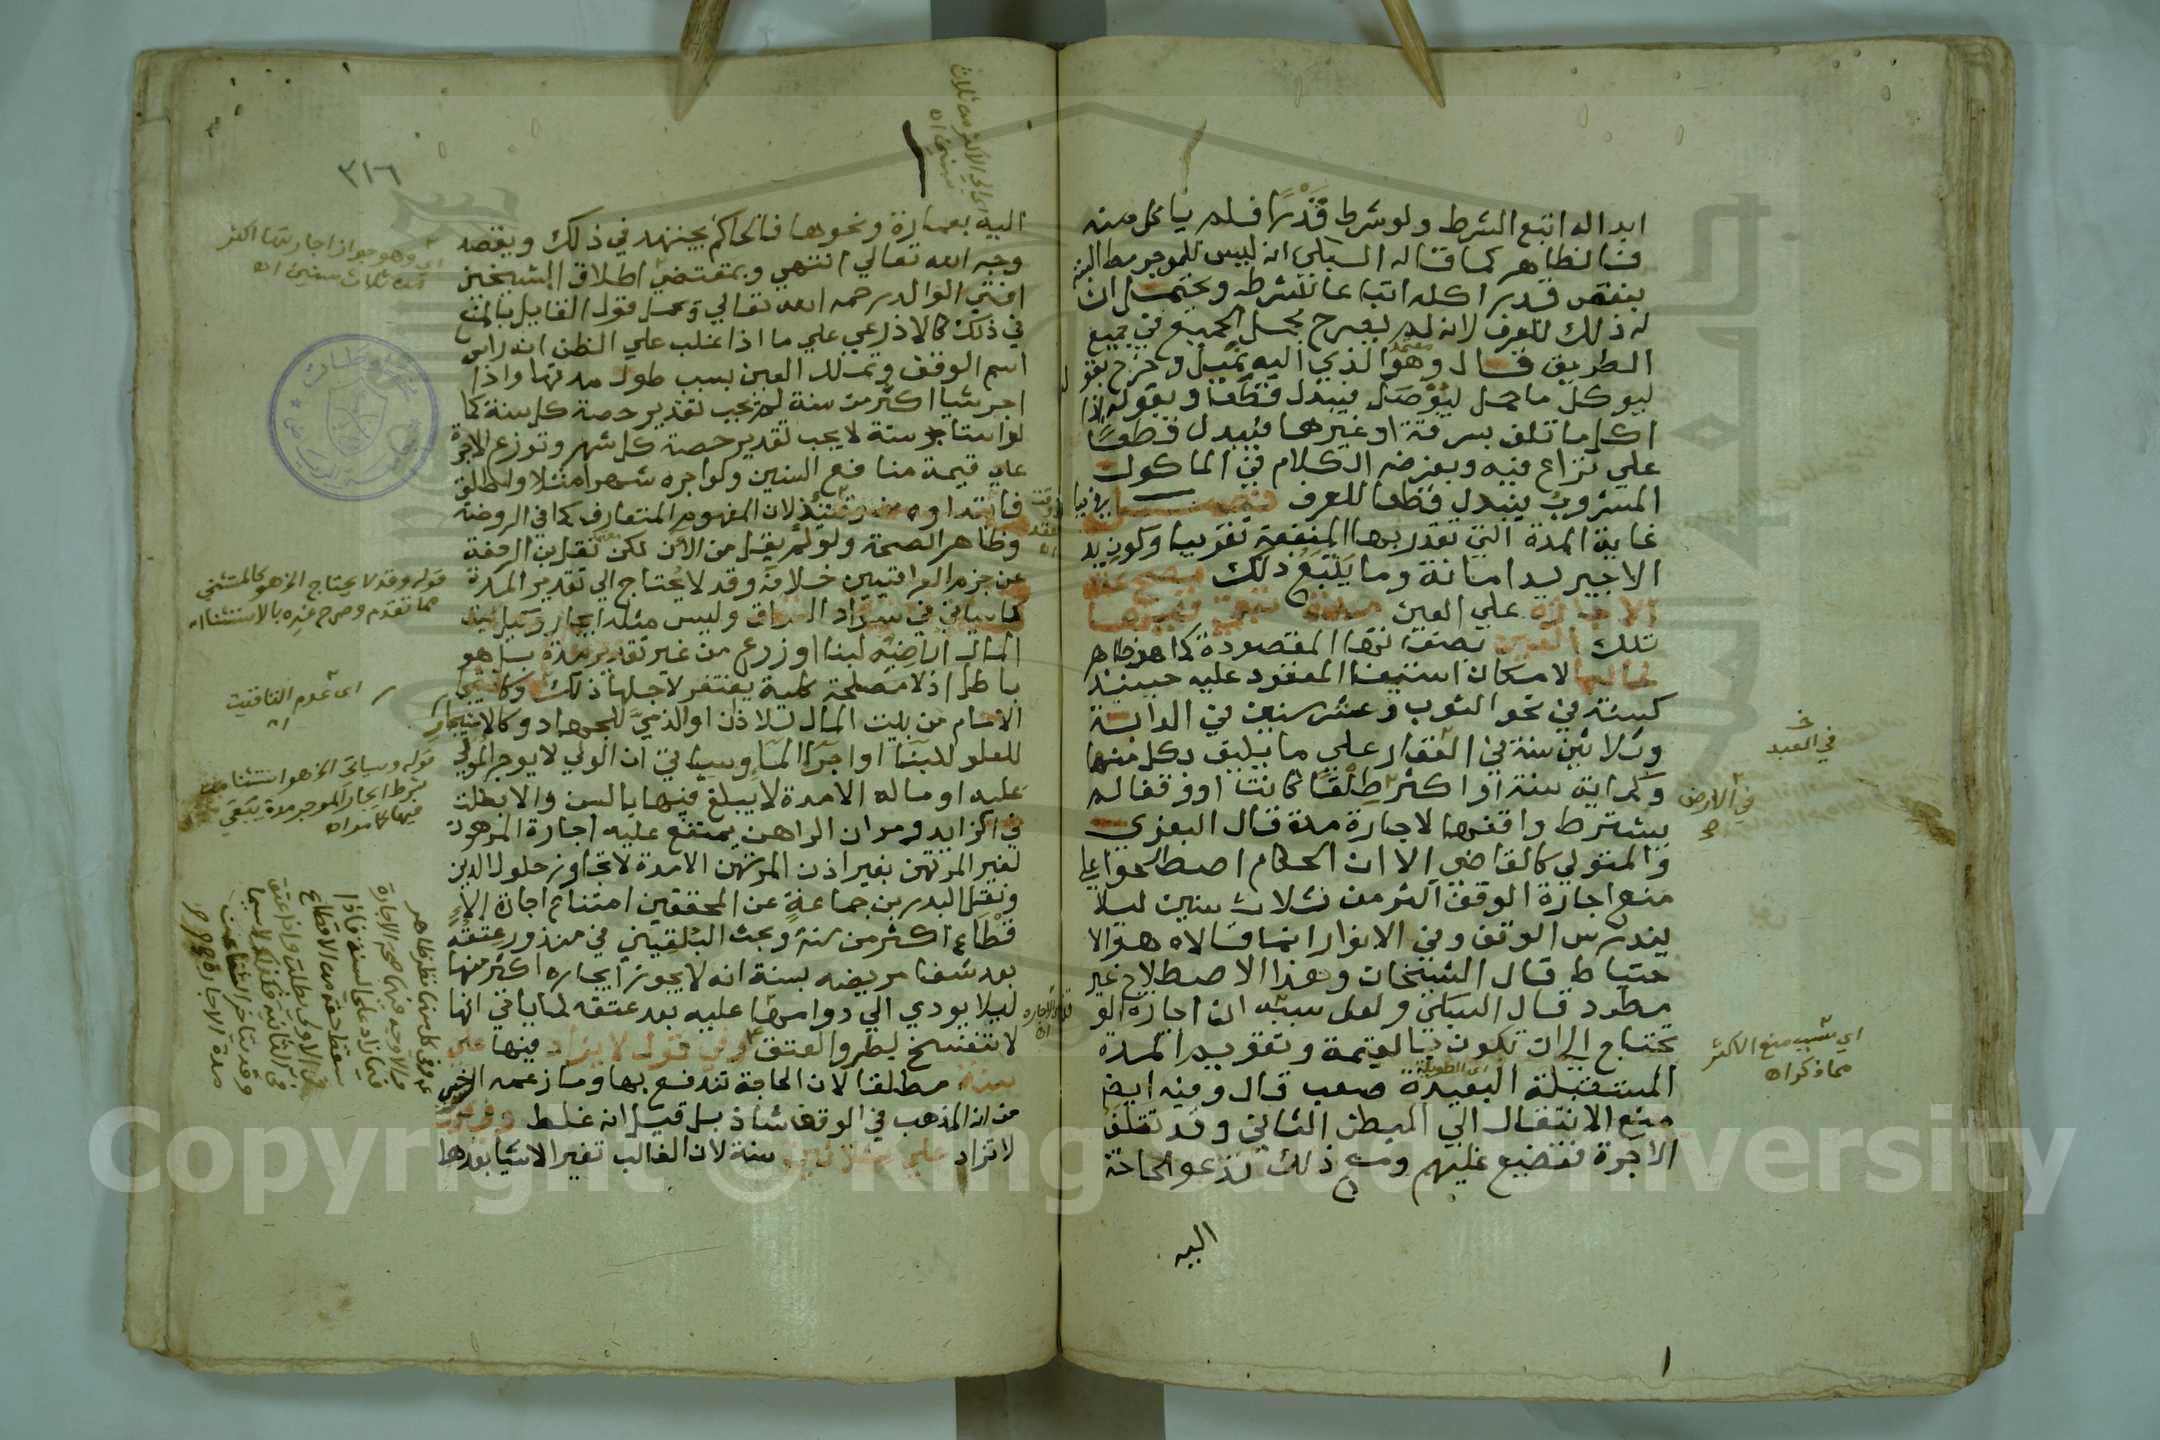 ابداله اتبع الشرط ولو شرط قَدْرًا فلم ياكل منه
فالظاهر كما قاله السبكي انه ليس للموجر مطالبته
بنقص قدر اكله اتباعا للشرط ويحتمل ان
له ذلك للعرف لانه لم يصرح بحمل الجميع في جميع
الطريق قال وهو الذي اليه نميل وخرج بقو
معتمد
ليوكل ما حمل ليوصل فيبدل قطعا وبقوله اذا
اكل ما تلف بسرقة او غيرها فيبدل قطعا
علي نزاع فيه وبفرضه الكلام في الماكول
المشروب فيبدل قطعا للعرف فصل في بيا
غاية المدة التي تقدر بها المنفعة تقريبا وكون يد
الاجير يد امانة وما يتبع ذلك يصح عقد
الاجارة علي العين مدة تبقي فيها
تلك العين بصفاتها المقصودة كما هو ظاهر
غالبا لامكان استيفا المعقود عليه حينيذ
كسنة في نحو الثوب وعشر سنين في الدابة
وثلاثين سنة في العقار علي ما يليق بكل منها
وكماية سنة او اكثر طِلْقًا كانت او وقفا لم
يشترط واقفها لاجارة مدة قال البغوي
والمتولي كالقاضي الا ان الحكام اصطلحوا علي
منع اجارة الوقف اكثر من ثلاث سنين ليلا
يندرس الوقف وفي الانوار انما قالاه هو الا
حتياط قال الشيخان وهذا الاصطلاح غير
مطرد قال السبكي ولعل سببه ان اجارة الو
يحتاج الي ان تكون بالقيمة وتقويم المدة
المستقبلة البعيدة صعب قال وفيه ايضا
اي الطويلة
منع الانتقال الي البطن الثاني وقد تتلف
الاجرة فتضيع عليهم ومع ذلك تدعو الحاجة
اليه
في العبد
في الارض
اي سبب منع الاكثر
مما ذكر اه
٣١٦
اي الي الاكثر من ثلاث
سنين اه
اليه بعمارة ونحوها فالحاكم يجتهد في ذلك ويقصد
وجه الله تعالي انتهي وبمقتضي اطلاق الشيخين
افتي الوالد رحمه الله تعالي وحمل قول القايل بالمنع
في ذلك كالاذرعي علي ما اذا غلب علي الظن اندراس
اسم الوقف وتملك العين بسبب طول مدتها واذا
اجر شيا اكثر من سنة لم يجب تقدير حصة كل سنة كما
لو استاجر سنة لا يجب تقدير حصة كل شهر وتوزع الاجرة
علي قيمة منافع السنين ولو اجره شهرا مثلا واطلق
فابتداوه من وقتيذ لان المفهوم المتعارف كما في الروضة
وظاهر الصحة ولو لم يقل من الآن لكن نقل ابن الرفعة
عن جزم العراقيين خلافه وقد لا يحتاج الي تقدير المدة
كما سياتي في سواد العراق وليس مثله ايجار وكيل بيت
المال اراضيه لبنا او زرع من غير تقدير مدة بل هو
باطل اذ لا مصلحة كلية يغتفر لاجلها ذلك وكاستيجار
الامام من بيت المال للاذان او الذمي للجهاد وكالاستيجار
للعلو للبنا او اجرا الما وسياتي ان الولي لا يوجر المولي
عليه او ماله الا مدة لا يبلغ فيها بالسن والا بطلت
في الزايد ومر ان الراهن يمتنع عليه اجارة المرهون
لغير المرتهن بغير اذن المرتهن الا مدة لا تجاوز حلول الدين
ونقل البدر بن جماعة عن المحققين امتناع اجارة الا
قطاع اكثر من سنة وبحث البلقيني في منذور عتقه
بعد شفا مريضه بسنة انه لا يجوز ايجاره اكثر منها
ليلا يودي الي دوامها عليه بعد عتقه لما ياتي انها
لا تنفسخ بطرو العتق وفي قول لا يزاد فيها علي
سنة مطلقا لان الحاجة تندفع بها وما زعمه السرخسي
من انه المذهب في الوقف شاذ بل قيل انه غلط وفي قول
لا تزاد علي ثلاثين سنة لان الغالب تغير الاشيا بعدها
اي وهو جواز اجارتها اكثر
من ثلاث سنين اه
قوله وقد لا يحتاج الخ هو كالمستثني
مما تقدم وصرح غيره بالاستثنا اه
اي عدم التاقيت
اه
قوله وسياتي الخ هو استثنا من
شرط ايجار الموجر مدة يبقي
فيها كما مر اه